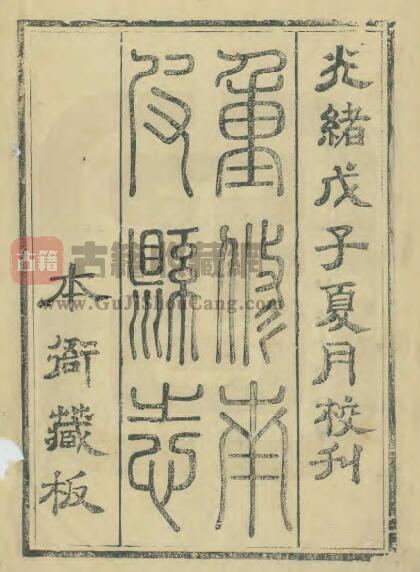 光緒戊子夏月校刊
重修南
皮縣志
本衙藏板
古籍
古籍收藏網
www.GuJiShouCang.com